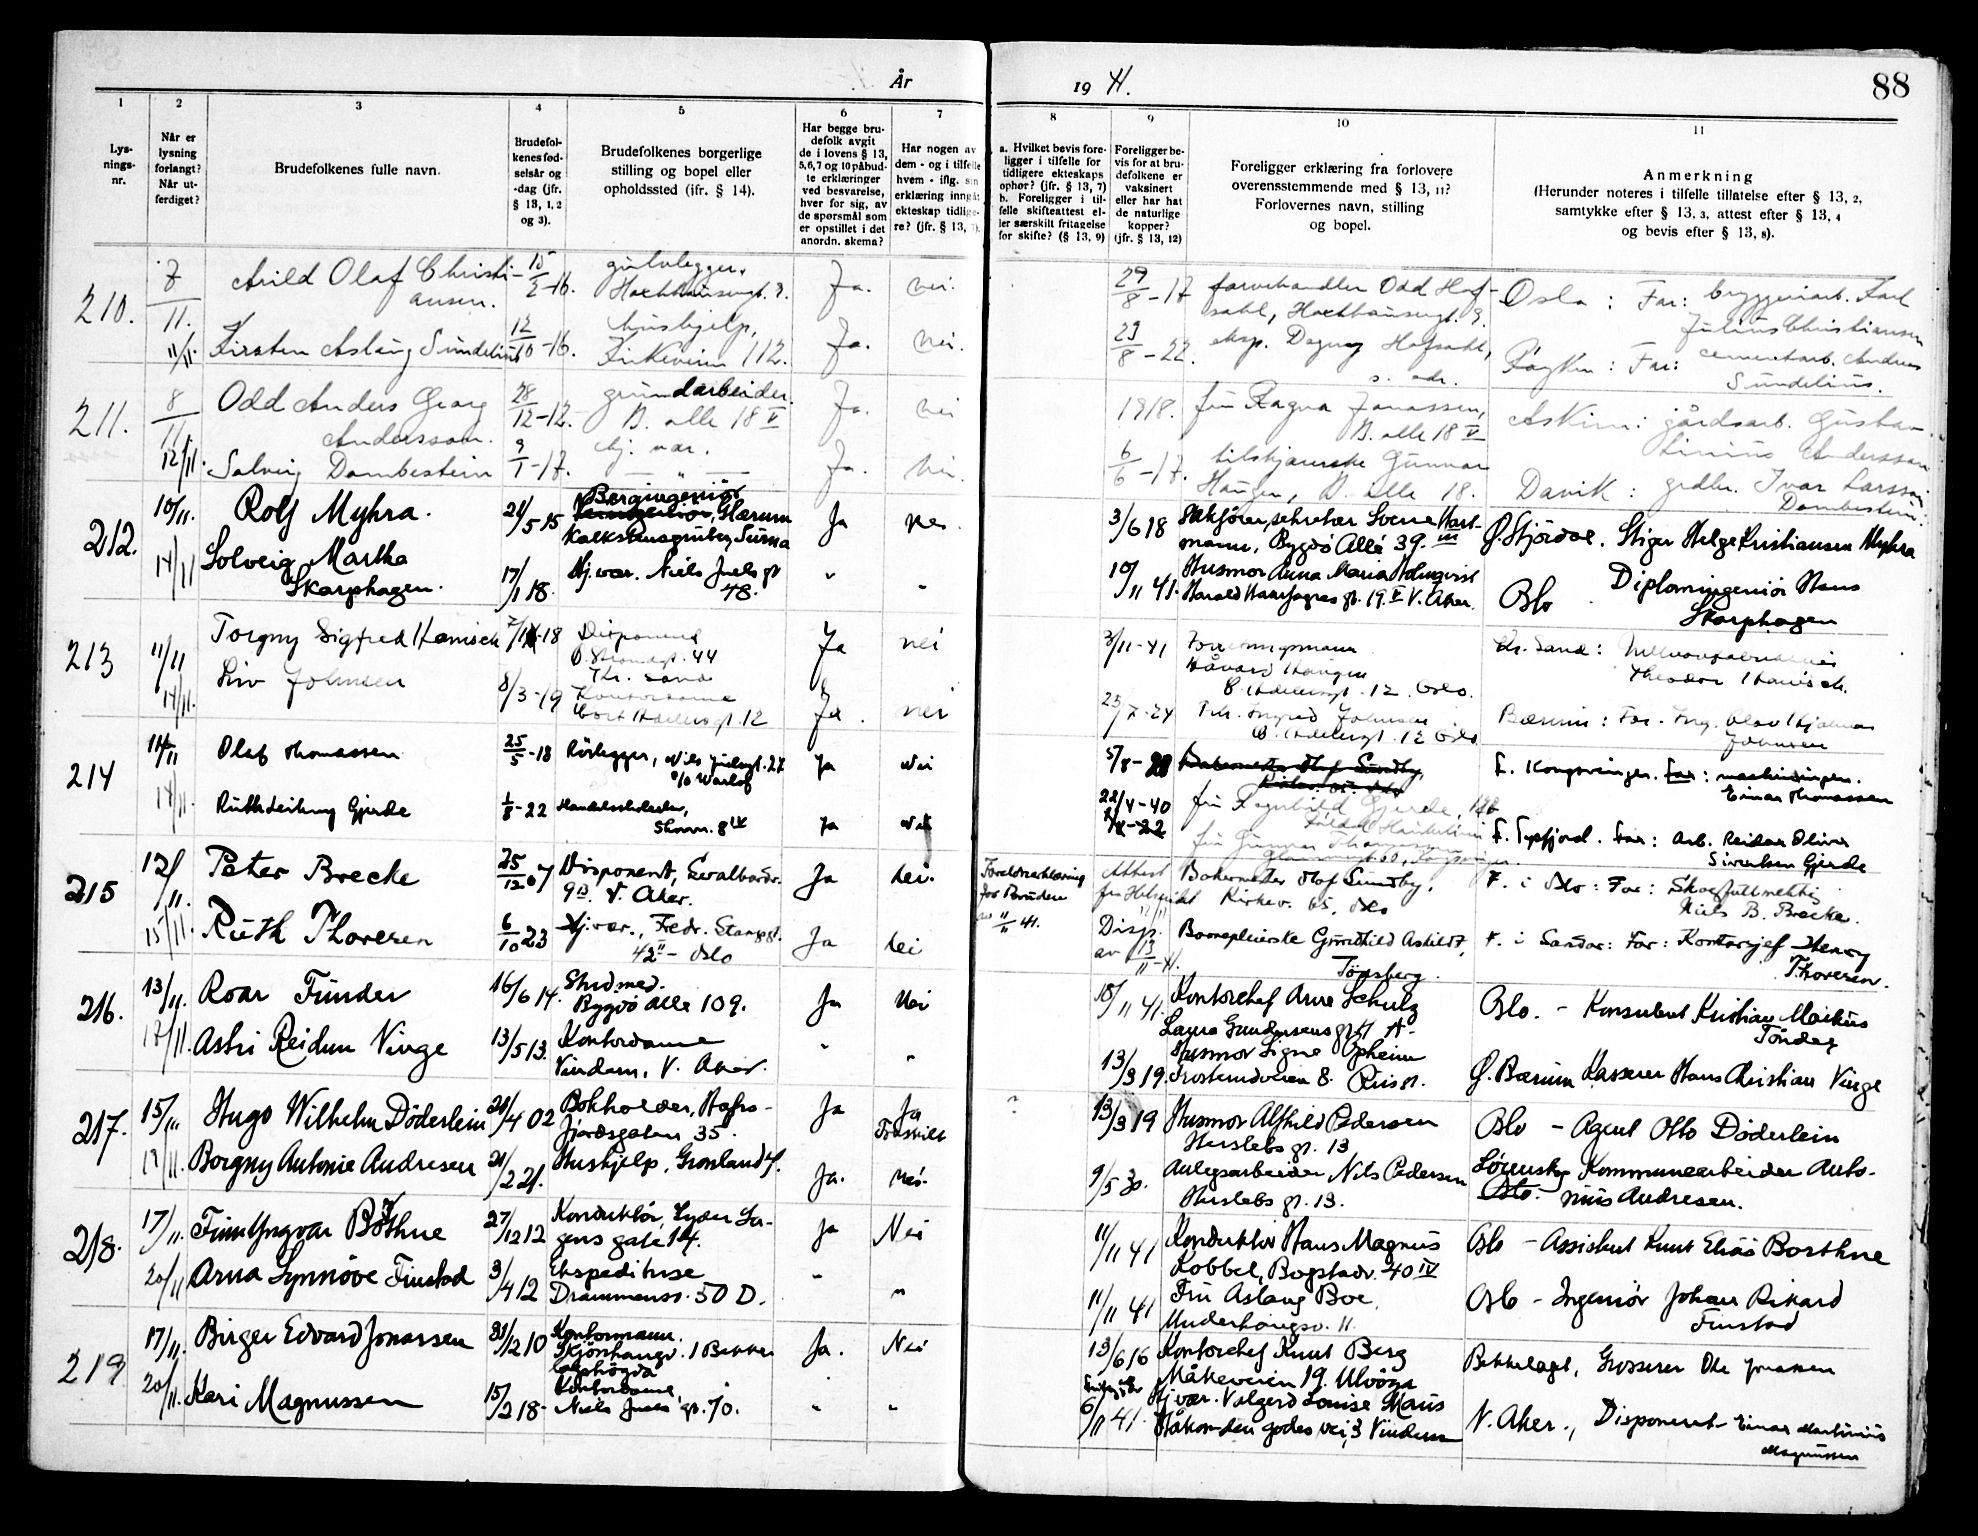 År
19 41.
88
1
2
3
4
5
6
7
8
9
10
11
Lys-
nings-
nr.
Når er
lysning
forlangt?
Når ut-
ferdiget?
Brudefolkenes fulle navn.
Brudefol-
kenes fød-
selsår og
-dag (jfr.
§ 13, 1, 2
og 3).
Brudefolkenes borgerlige
stilling og bopel eller
opholdssted (ifr. § 14).
Har begge bru-
defolk avgit
de i lovens § 13,
5,6,7 og 10 påbud-
te erklæringer
ved besvarelse,
hver for sig, av
de spørsmål som
er opstillet i det
anordn. skema?
Har nogen av
dem - og i tilfelle
hvem - iflg. sin
erklæring inngåt
ekteskap tidlige-
re? (jfr. § 13, 7).
a. Hvilket bevis fore-
ligger i tilfelle for
tidligere ekteskaps
ophør? (jfr. § 13, 7)
b. Foreligger i til-
felle skifteattest el-
ler særskilt fritagelse
for skifte? (§ 13, 9)
Foreligger be-
vis for at bru-
defolkene er
vaksinert
eller har hat
de naturlige
kopper?
(jfr. § 13, 12)
Foreligger erklæring fra forlovere
overensstemmende med § 13, 11?
Forlovernes navn, stilling
og bopel.
Anmerkning
(Herunder noteres i tilfelle tillatelse efter § 13, 2,
samtykke efter § 13, 3, attest efter § 13, 4
og bevis efter § 13, 8).
210.
7
11.
Arild Olaf Christi-
ansen.
15
2-16.
gulvlegger.
Ja.
nei.
29
8-17
farvehandler Odd Hof-
sahl,
Oslo : Far: byggeriarb. Karl
Julius Christiansen
11/11.
Kirsten Aslaug Sundelius
12
10-16.
hushjelp,
Kirkeveien 112.
Ja.
nei.
23
8-22.
eksp. Dagny Hofsahl,
s. adr.
Røyken : Far: cementarb. Anders
Sundelius.
211.
8
11
Odd Anders Georg
Andersson.
28
12-12.
grundarbeider
B. alle 18 V
Ja.
nei
1918.
fru Ragna Jonassen,
B. alle 18 V
Askim: gårdsarb. Gustav
Linius Andersson
12/11.
Solveig Dombestein
9
1-17.
hj. vær.
Ja.
nei.
6
6-17.
tilskjærerske Gunvor
Haugen, B. alle 18.
Davik : grdbr. Ivar Larssøn
Dombestein.
212.
10/11.
Rolf Myhra.
21/5 15
Bergingeniør
Ja
nei.
3/6 18
Sakfører, sekretær Sverre Hart-
mann, Bygdö Allé 39. III
Ø. Stjördal. Stiger Helge Kristiansen Myhra
14/11
Solveig Martha
Skarphagen.
17/1 18.
Hj. vær. Niels Juels gt
78.
"
"
10/11 41.
Husmor Anna Maria Holmqvist
Harald Haarfagres gt. 19. V V. Aker.
Oslo
Diplomingeniör Hans
Skarphagen
213
11/11
Torgny Sigfred Hamisch
Disponent
Ø. Strandgt. 44
Kr. sand
Ja
nei
3/11-41
Håvard Haugen
C. Adelersgt. 12. Oslo.
Kr. Sand :
Theodor Hamisch.
14/11.
Liv Johnsen
8/3-19
Kontordame
Cort Adelersgt. 12
Ja.
nei
23/7-24
Frk. Ingrid Johnsen
C. Adelersgt. 12 Oslo
Bærum : Far. Ing. Olav Hjalmar
Johnsen
214
11/11
Olaf Thomassen
25
5-18
Rörlegger, Niels Juelsgt. 27
Ja
Nei
5/8-
Bakermester Olof Sundby,
F. Kongsvinger. Far : maskiningen.
Einar Thomassen
14/11.
Ruth Leikny Gjerde
1
8-22
Skovv. 8 IV
Ja
Nei
22/4-40
fru Ragnhild Gjerde,
fru Gunvor Thomassen
F. Sypfjord. Far : Arb. Reidar Oliver
Sivertsen Gjerde
215
12/11.
Peter Brecke
25
12 07
Disponent, Ewaldsvdr.
9 B. V. Aker.
Ja
Nei.
Foreldreerklæring
for Bruden
11
11 41.
Attest
Bakermester Olof Sundby.
Kirkev. 65, Oslo
F. i Oslo : Far : Skogfullmektig
Niels B. Brecke.
15/11.
Ruth Thoresen
6
10 23
Hj. vær., Fredr. Stangsgt.
42 II - Oslo
Ja
Nei
Disp.
av 13
11-41.
Barnepleierske Gunhild Askildt,
Tönsberg.
F. i Sandar : Far : Kontorsjef Henry
Thoresen.
216.
13/11.
Roar Fünder
16/6 14.
Stud med.
Bygdö alle 109.
Ja
Nei
10/11 41.
Kontorchef Arne Schulz
Oslo. - Konsulent Kristian Markus
17/11.
Astri Reidun Vinge
13/5 13.
Kontordame
Vindern, V. Aker.
"
"
13/3 19.
Husmor Signe Opheim
Ø. Bærum Kasserer Hans Christian Vinge
217.
15/11.
Hugo Wilhelm Döderlein
21/4 02
Bokholder, Hafrs-
fjordsgaten 35.
Ja
Ja
Fraskilt
?
13/3 19
Husmor Alfhild Pedersen
Herslebs gt. 13
Oslo - Agent Otto Döderlein
18/11.
Borgny Antonie Andresen
21/2 21.
Hushjelp, Grønland 4.
Ja.
Nei.
9/5 30.
Anlegsarbeider Nils Pedersen
Herslebs gt. 13.
Lørenskog Kommunearbeider Anto-
Oslo - nius Andresen.
218.
17/11.
Finn Yngvar Borthne
27/12 12
Konduktör, Lyder Sa-
gens gate 14.
Ja
Nei
11/11 41
Konduktör Hans Magnus
Kobbel, Bogstadv. 40 IV
Oslo - Assistent Knut Eliäs Borthne
20/11
Arna Synnöve Finstad
3/4 12
Ekspeditrise
Drammensv. 50 D.
"
"
11/11 41
Fru Aslaug Boe.
Underhaugsv. 11.
Oslo - Ingeniør Johan Rikard
Finstad
219
17/11.
Birger Edvard Jonassen
30/2 10
Kontormann.
Ja.
Nei
13/6 16
Kontorchef Knut Berg
Måkeveien 19. Ulvöya
Bekkelaget, Grosserer Ole Jonassen
20/11.
Kari Magnussen
15/2 18-
Kontordame,
Niels Juels gt. 70.
"
"
6/11 41.
Hj vær. Valgerd Louise Maus
Håkon den godes vei, 3 Vindern
V. Aker., Disponent Einar Martinius
Magnussen